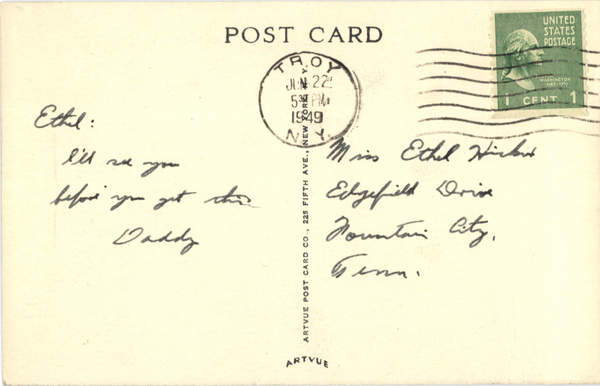 POST CARD
UNITED
STATES
POSTAGE
WASHINGTON
1 CENT 1
TROY
JUN 22
5 PM
1949
N.Y.
Ethel:
I'll see you
before you get this
Daddy
Miss Ethel
Edgefield Drive
Fountain City,
Tenn.
ARTVUE POST CARD CO., 225 FIFTH AVE., NEW YORK, N.Y.
ARTVUE